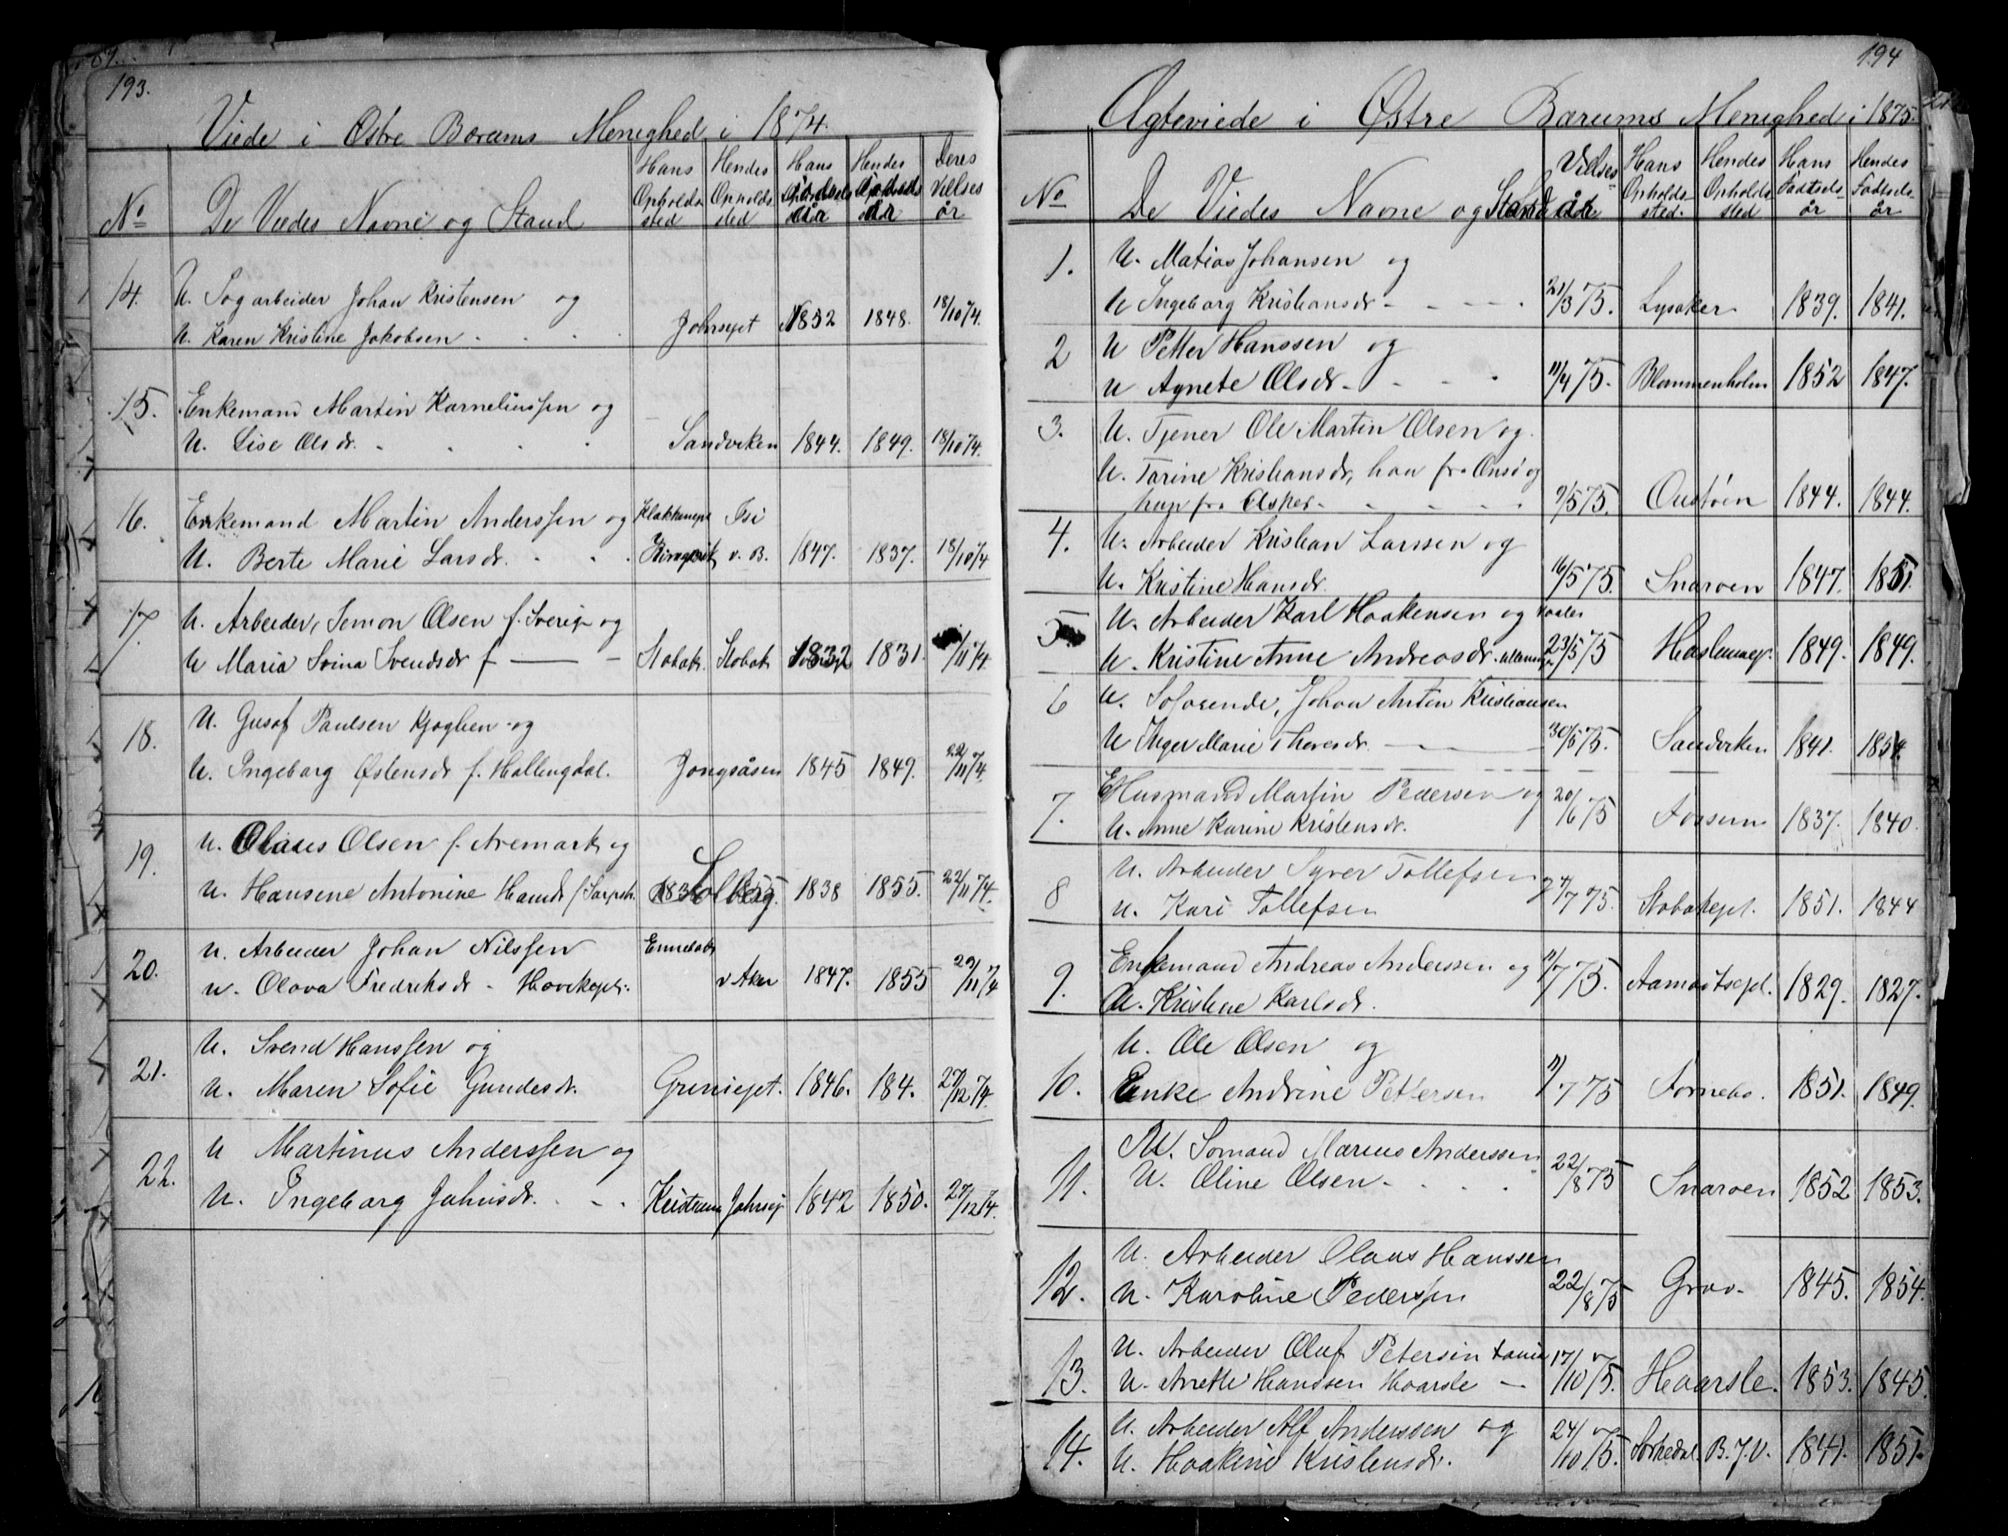 193.
Viede i Østre Bærums Menighed i 1874.
No
De Viedes Navne og Stand
Hans Opholdssted
Hendes Opholdssted
Hans år
Hendes år
Deres Vielses år
14. U. Johan Kristensen og
U. Karen Kristine Jakobsen - - - 1852 1848. 18/10 74.
15. Enkemand Martin Karneliussen og
U. Lise Olsdr. - - - Sandviken 1844. 1849. 18/10 74.
16. Enkemand Martin Anderssen og
U. Berte Marie Larsdr. - - v. B. 1847. 1837. 18/10 74
17. U. Arbeider, Simon Olsen f. Sverige og
U Maria Svendsdr f —— - Stabæk. Stabæk 1832 1831. /11 74
18. U. Gusaf Paulsen og
U. Ingeborg Østensdr f. Hallingdal. Jongsåsen 1845 1849. 22/11 74.
19. U. Olaus Olsen f. Aremark og
U. Hansene Antonine Solberg. 1838 1855. 22/11 74.
20. U. Arbeider Johan Nilssen
U. Olava Fredriksdr - v Aker 1847. 1855 29/11 74
21. U. Svend Hanssen og
U. Maren Sofie Gundesdr. 1846. 184. 27/12 74.
22. U Martinus Anderssen og
U. Ingeborg - - 1842 1850. 27/12 74.
194
Ægteviede i Østre Bærums Menighed i 1875.
No
De Viedes Navne og Stand
Vielses
Hans Opholdssted.
Hendes Opholdssted
Hans Fødtsels år
Hendes Fødtsels år
1. U. Matias Johansen og
U Ingeborg Kristiansdr - - - 21/3 75. Lysaker 1839. 1841.
2 U Petter Hanssen og
U Agnete Olsdr - - - 11/4 75. Blommenholm 1852 1847.
3. U. Tjener Ole Martin Olsen og
U. Tarine Kristiansdr, han fra Onsø og
hun fra Asker - - - 9/5 75. Oustøen 1844. 1844.
4. U. Arbeider Kristian Larssen og
U. Kristine Hansdr. 16/5 75. Snarøen 1847. 1851.
5 U. Arbeider Karl Haakensen og
U. Kristine Anne Andreasdr. 23/5 75 1849. 1849.
6 U. Johan Anton Kristiansen
U Inger Marie 30/5 75. Sandviken 1841. 1854.
7. Husmand Martin Pedersen og
U. Anne Karine Kristensdr. 20/6 75 Fossum 1837. 1840.
8 U. Arbeider Syver Tollefsen
U. Kari Tollefsen 7 75. 1851. 1844
9. Enkemand Andreas Anderssen og
U. Kristine Karlsdr. 11/7 75. 1829. 1827.
10. U. Ole Olsen og
Enke Andrine Pettersen 11/7 75 Fornebo. 1851. 1849.
11. U. Sømand Marius Anderssen
U. Oline Olsen - - - 22/8 75 Snarøen 1852 1853.
12. U. Arbeider Olaus Hanssen
U. Karoline Pederssen 22/8 75 Grav. 1845. 1854.
13. U. Arbeider Oluf Petersen
U. Anette Hansen Haarsle - 17/10 75. Haarsle. 1853. 1845.
14. U. Arbeider Alf Anderssen og
U. Haakine Kristensdr. 24/10 75. Sørkedal. B. J. V. 1841. 1851.